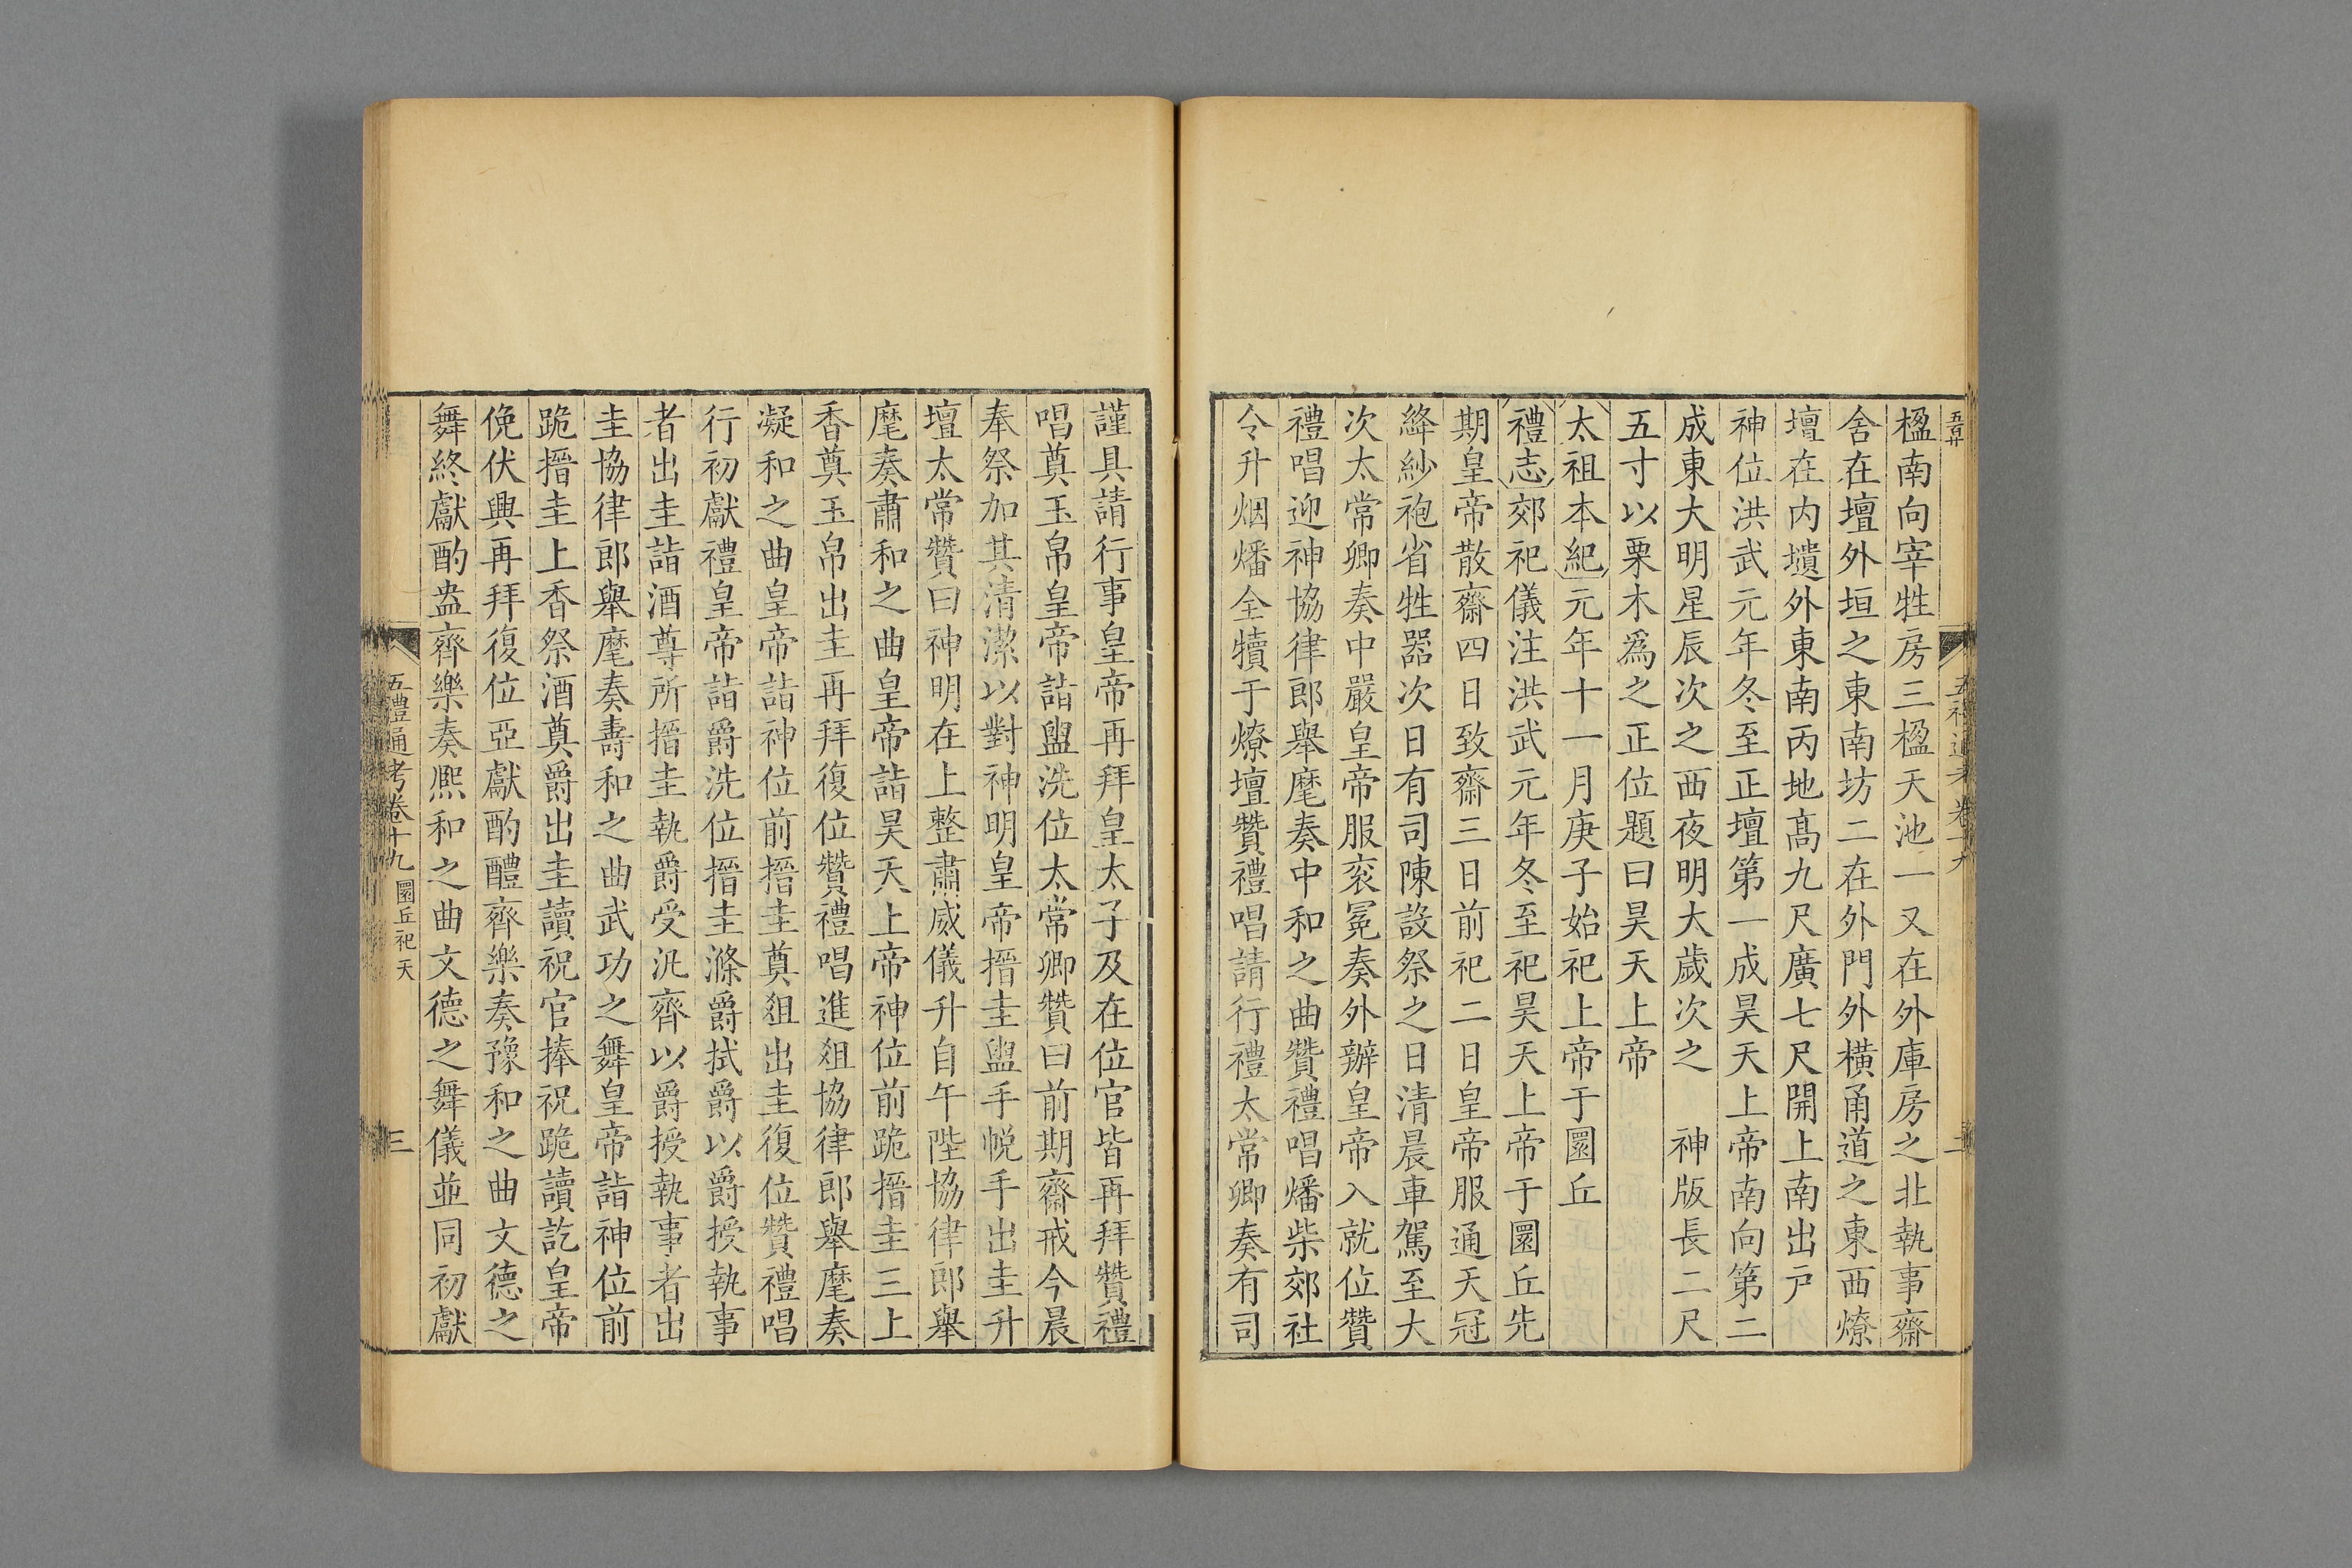 楹南向宰牲房三楹天池一又在外庫房之北執事齋
舍在壇外垣之東南坊二在外門外橫甬道之東西燎
壇在内壝外東南丙地髙九尺廣七尺開上南出戸
神位洪武元年冬至正壇第一成昊天上帝南向第二
成東大明星辰次之西夜明太歲次之　神版長二尺
五寸以栗木爲之正位題曰昊天上帝
太祖本紀元年十一月庚子始祀上帝于圜丘
禮志郊祀儀注洪武元年冬至祀昊天上帝于圜丘先
期皇帝散齋四日致齋三日前祀二日皇帝服通天冠
絳紗袍省牲器次日有司陳設祭之日清晨車駕至大
次太常卿奏中嚴皇帝服衮冕奏外辦皇帝入就位贊
禮唱迎神協律郎舉麾奏中和之曲贊禮唱燔柴郊社
令升烟燔全犢于燎壇贊禮唱請行禮太常卿奏有司
謹具請行事皇帝再拜皇太子及在位官皆再拜贊禮
唱奠玉帛皇帝詣盥洗位太常卿贊曰前期齋戒今晨
奉祭加其清潔以對神明皇帝搢圭盥手帨手出圭升
壇太常贊曰神明在上整肅威儀升自午陛協律郎舉
麾奏肅和之曲皇帝詣昊天上帝神位前跪搢圭三上
香奠玉帛出圭再拜復位贊禮唱進俎協律郎舉麾奏
凝和之曲皇帝詣神位前搢圭奠俎出圭復位贊禮唱
行初獻禮皇帝詣爵洗位搢圭滌爵拭爵以爵授執事
者出圭詣酒尊所搢圭執爵受汎齊以爵授執事者出
圭協律郎舉麾奏壽和之曲武功之舞皇帝詣神位前
跪搢圭上香祭酒奠爵出圭讀祝官捧祝跪讀訖皇帝
俛伏興再拜復位亞獻酌醴齊樂奏豫和之曲文德之
舞終獻酌盎齊樂奏熈和之曲文德之舞儀並同初獻
五禮通考卷十九 圜丘祀天 三